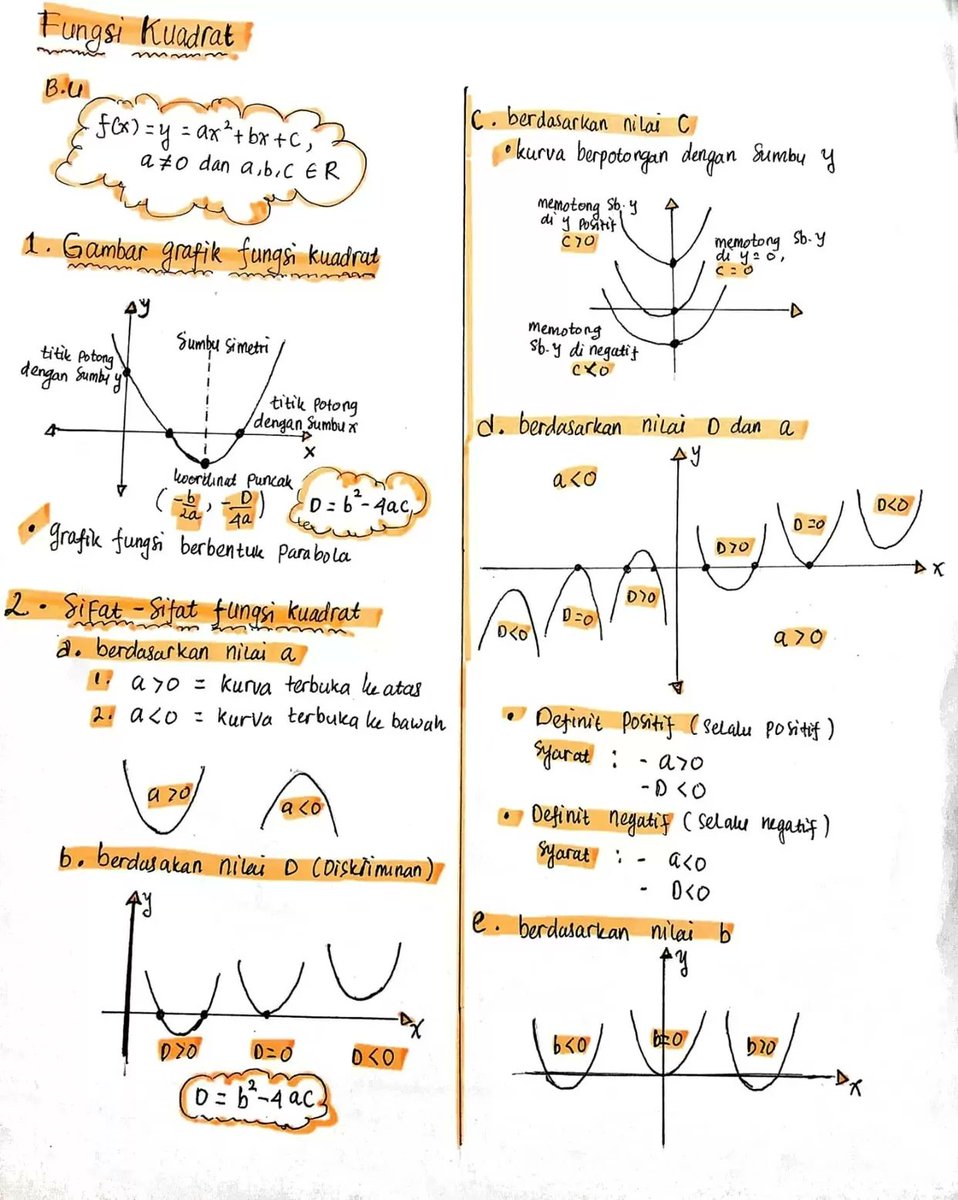 Fungsi Kuadrat
B.U
f(x) = y = ax² + bx + C,
a ≠ 0 dan a, b, C ∈ R
1. Gambar grafik fungsi kuadrat
y
Sumbu Simetri
titik Potong
dengan Sumbu y
titik Potong
dengan Sumbu x
x
koordinat Puncak
(-b/2a, -D/4a)
D = b² - 4ac
• grafik fungsi berbentuk Parabola
2. Sifat - Sifat fungsi kuadrat
a. berdasarkan nilai a
1. a>0 = kurva terbuka ke atas
2. a<0 = kurva terbuka ke bawah
a>0
a<0
b. berdasakan nilai D (Diskriminan)
y
x
D>0
D=0
D<0
D = b² - 4 ac
C. berdasarkan nilai C
• kurva berpotongan dengan Sumbu y
memotong Sb. y
di y Positif
C>0
memotong Sb. y
di y = 0,
c = 0
memotong
Sb. y di negatif
C<0
d. berdasarkan nilai D dan a
y
a<0
D<0
D=0
D>0
x
D>0
D=0
D<0
a>0
• Definit Positif (Selalu Positif)
Syarat : - a>0
- D<0
• Definit negatif (Selalu negatif)
Syarat : - a<0
- D<0
e. berdasarkan nilai b
y
b<0
b=0
b>0
x